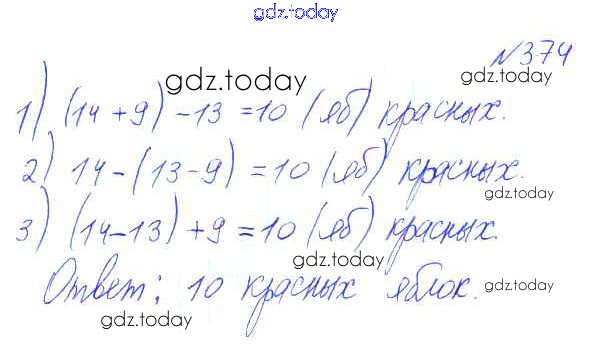 gdz.today
№374
gdz.today
gdz.today
1) (14+9)-13=10 (яб) красных.
2) 14-(13-9)=10 (яб) красных.
gdz.today
3) (14-13)+9=10 (яб) красных.
gdz.today
Ответ: 10 красных яблок.
gdz.today
gdz.today